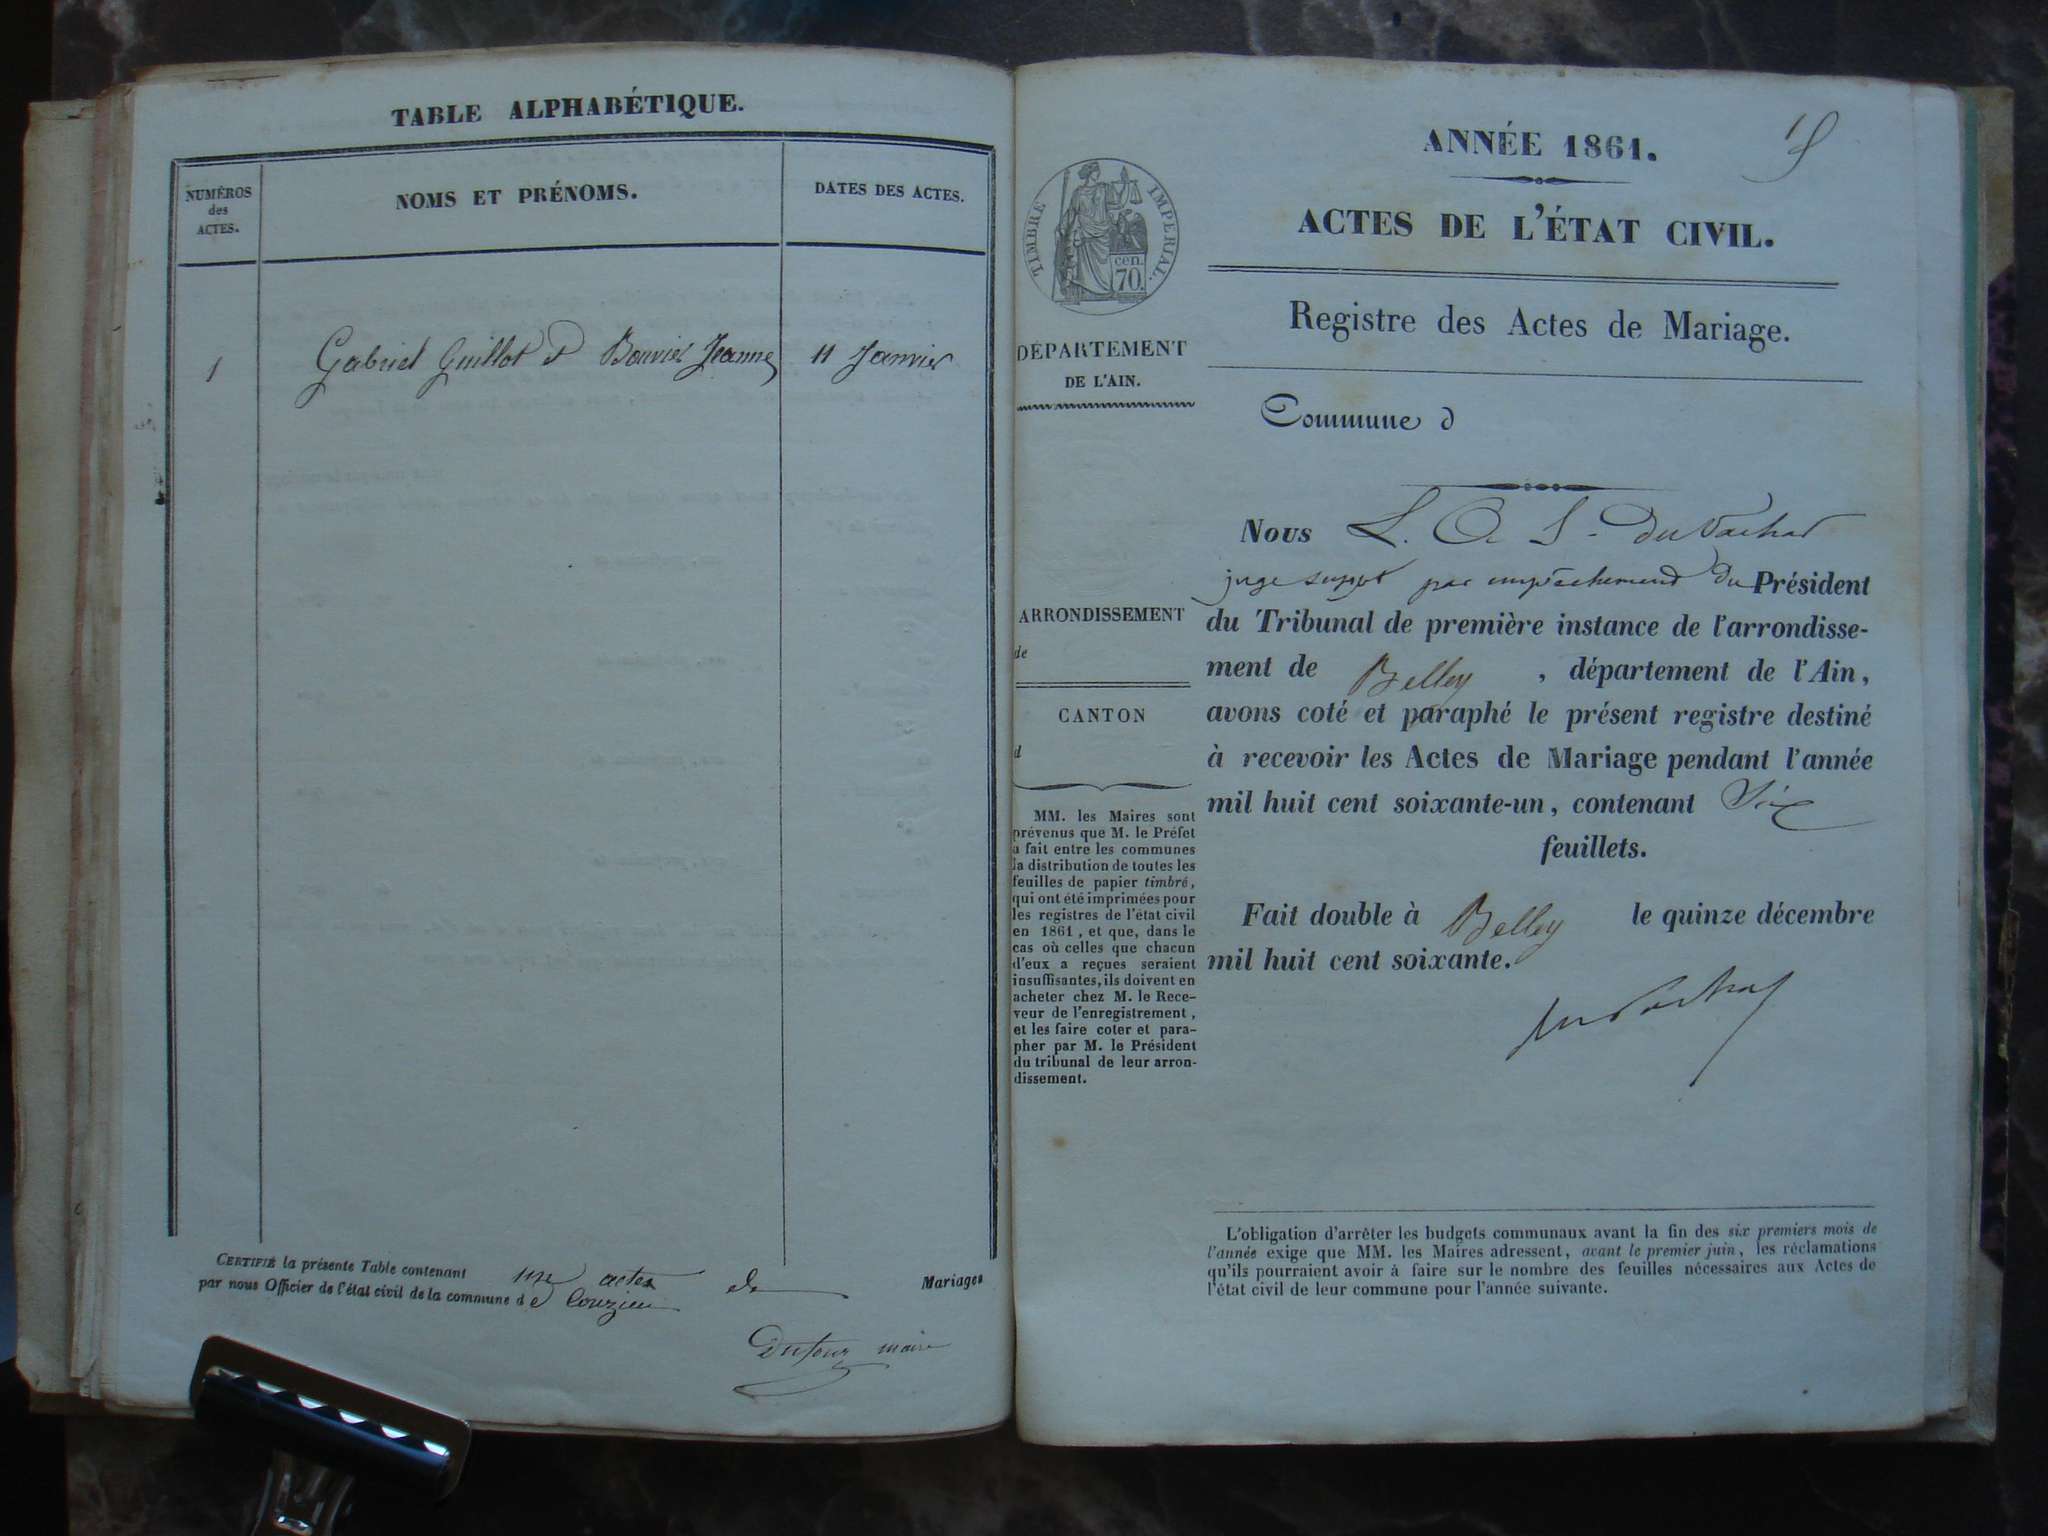 TABLE ALPHABÉTIQUE.
NUMÉROS
des
ACTES.
NOMS ET PRÉNOMS.
DATES DES ACTES.
1
Gabriel Guillot et Bouvier Jeanne
11 Janvier
CERTIFIÉ la présente Table contenant une actes de Mariages
par nous Officier de l'état civil de la commune de Conzieu
Dufour maire
TIMBRE IMPERIAL.
cen.
70.
DÉPARTEMENT
DE L'AIN.
ARRONDISSEMENT
de
CANTON
d
MM. les Maires sont
prévenus que M. le Préfet
a fait entre les communes
la distribution de toutes les
feuilles de papier timbré,
qui ont été imprimées pour
les registres de l'état civil
en 1861, et que, dans le
cas où celles que chacun
d'eux a reçues seraient
insuffisantes, ils doivent en
acheter chez M. le Rece-
veur de l'enregistrement,
et les faire coter et para-
pher par M. le Président
du tribunal de leur arron-
dissement.
ANNÉE 1861.
ACTES DE L'ÉTAT CIVIL.
Registre des Actes de Mariage.
Commune d
Nous
juge suppt par empêchement du Président
du Tribunal de première instance de l'arrondisse-
ment de Belley, département de l'Ain,
avons coté et paraphé le présent registre destiné
à recevoir les Actes de Mariage pendant l'année
mil huit cent soixante-un, contenant Six
feuillets.
Fait double à Belley le quinze décembre
mil huit cent soixante.
L'obligation d'arrêter les budgets communaux avant la fin des six premiers mois de
l'année exige que MM. les Maires adressent, avant le premier juin, les réclamations
qu'ils pourraient avoir à faire sur le nombre des feuilles nécessaires aux Actes de
l'état civil de leur commune pour l'année suivante.